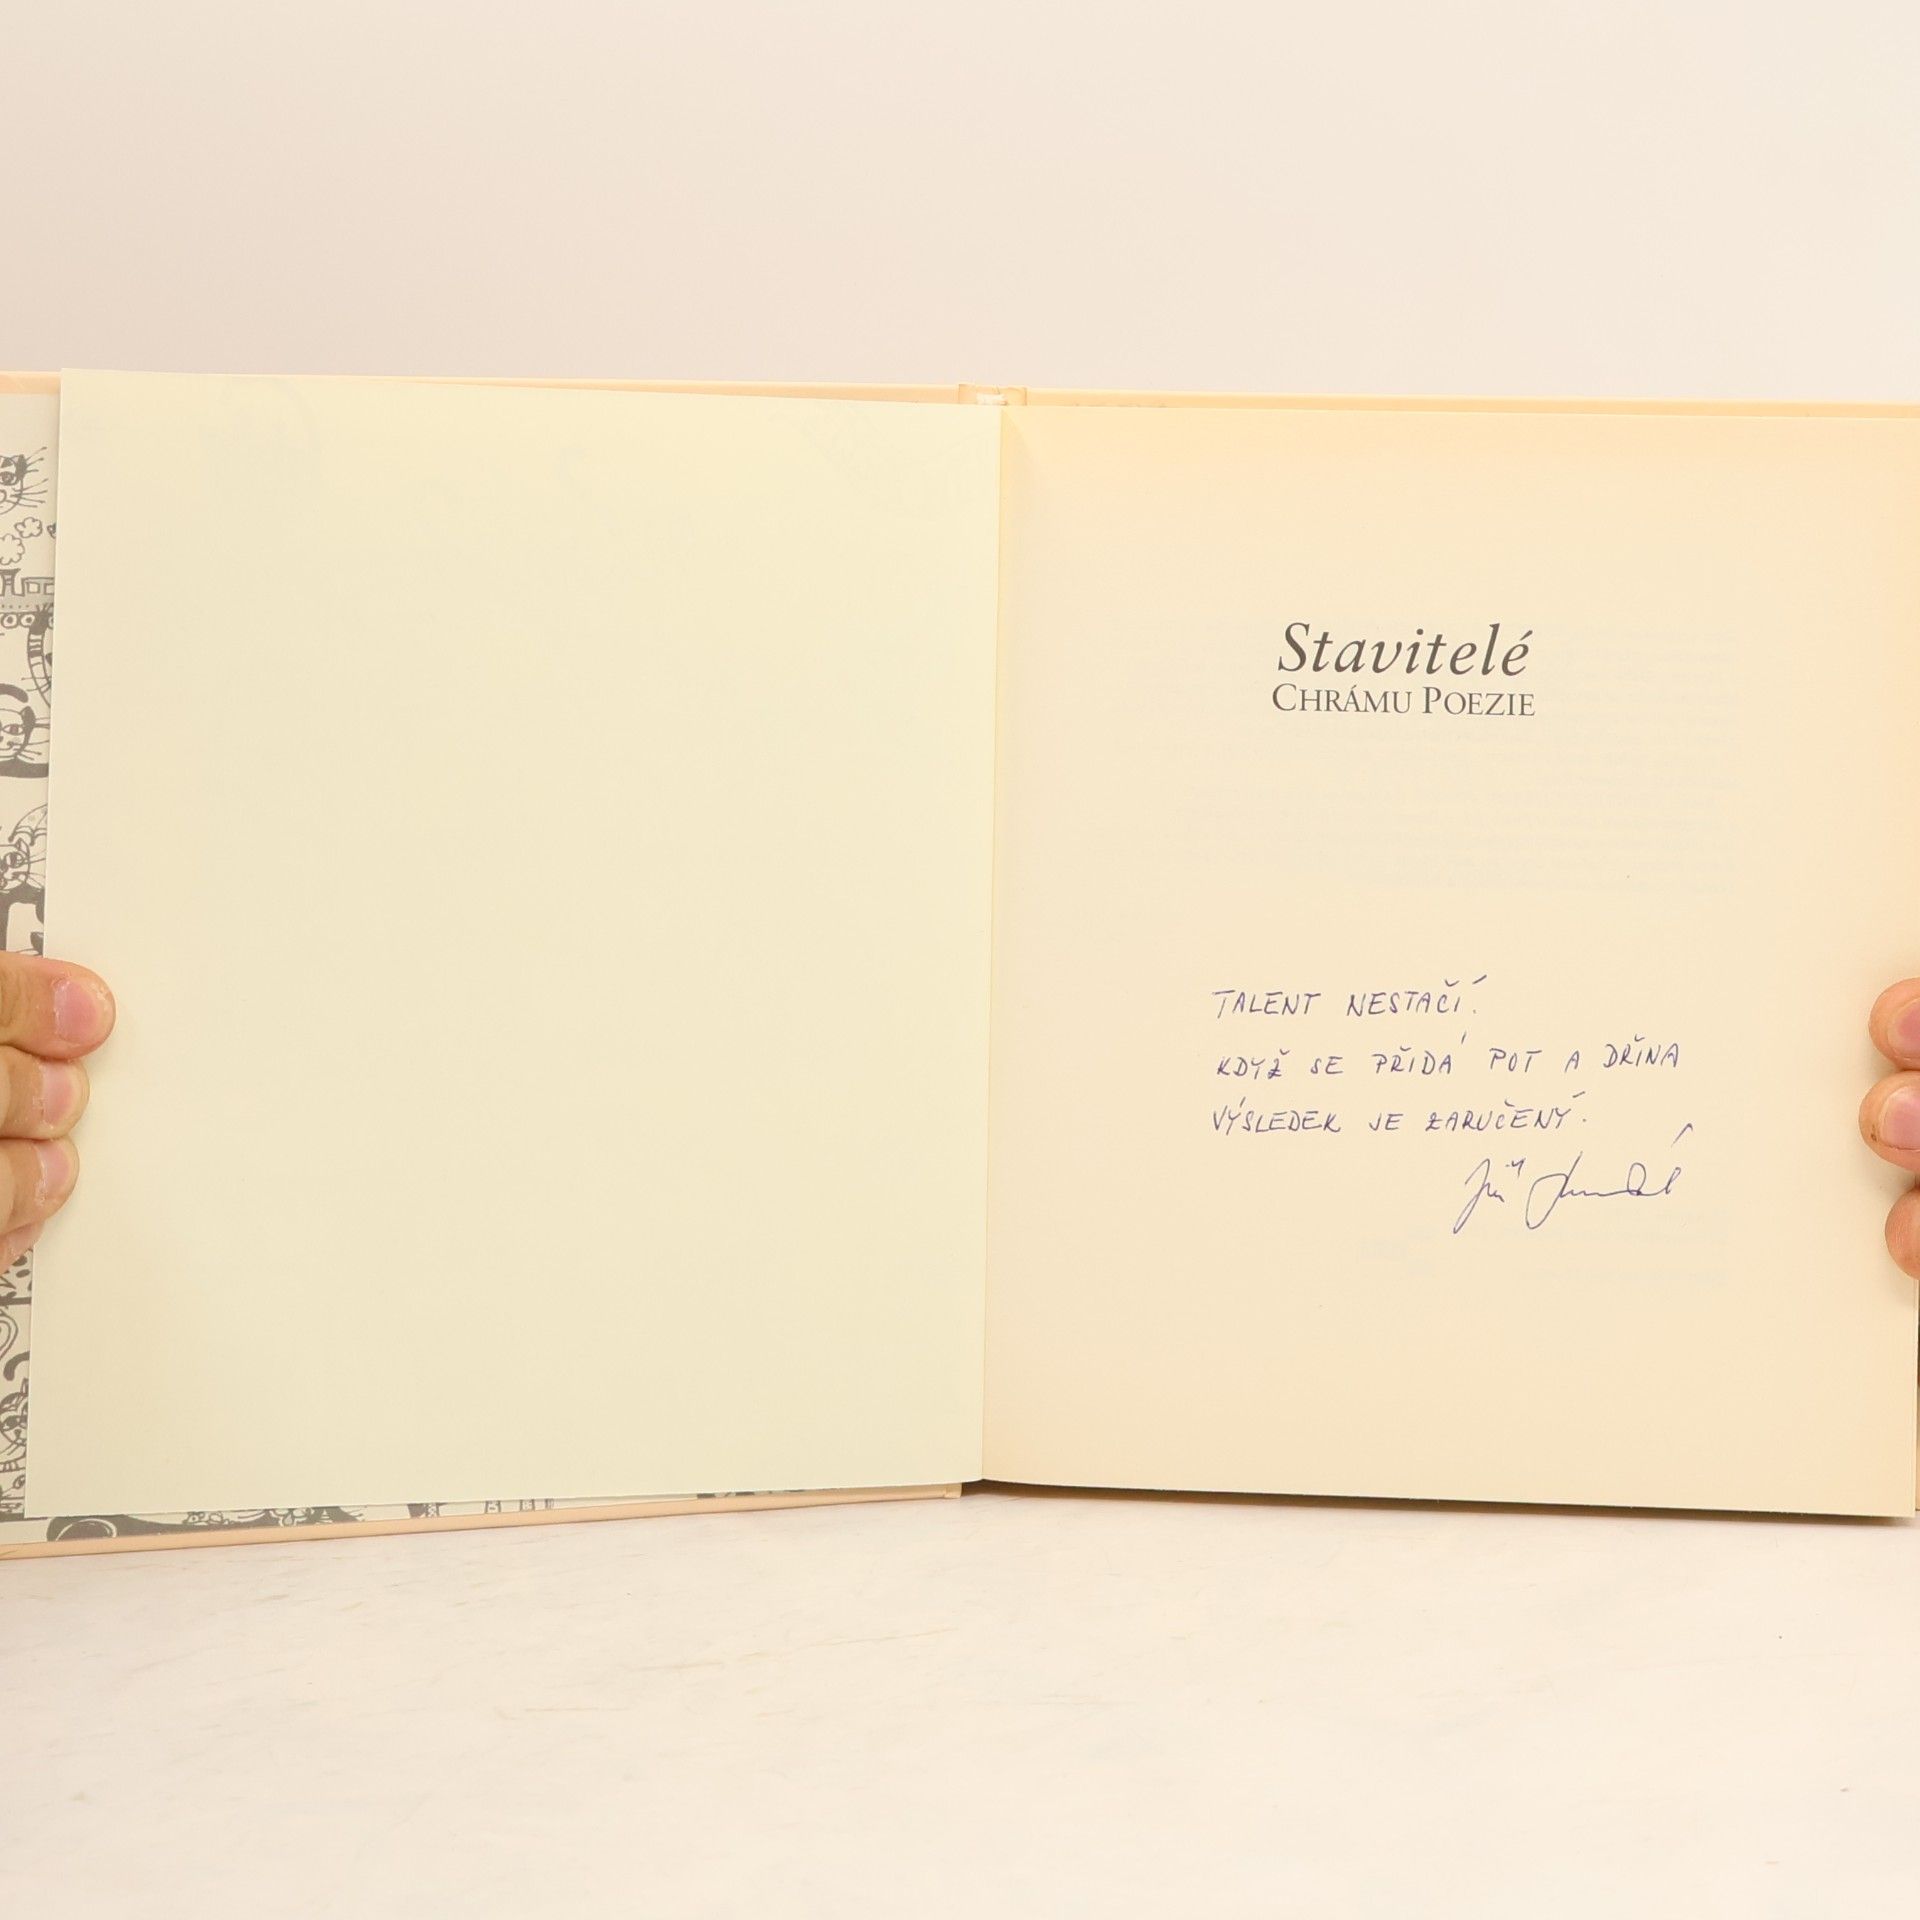 Stavitelé
CHRÁMU POEZIE
TALENT NESTAČÍ.
KDYŽ SE PŘIDÁ POT A DŘINA
VÝSLEDEK JE ZARUČENÝ.
Jiří